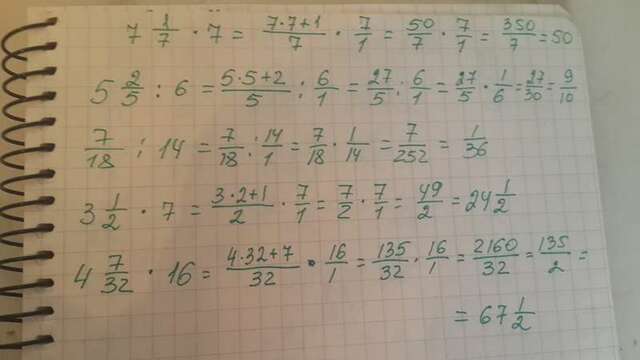 7 1/7 · 7 = (7·7+1)/7 · 7/1 = 50/7 · 7/1 = 350/7 = 50
5 2/5 : 6 = (5·5+2)/5 : 6/1 = 27/5 : 6/1 = 27/5 · 1/6 = 27/30 = 9/10
7/18 : 14 = 7/18 : 14/1 = 7/18 · 1/14 = 7/252 = 1/36
3 1/2 · 7 = (3·2+1)/2 · 7/1 = 7/2 · 7/1 = 49/2 = 24 1/2
4 7/32 · 16 = (4·32+7)/32 · 16/1 = 135/32 · 16/1 = 2160/32 = 135/2 =
= 67 1/2